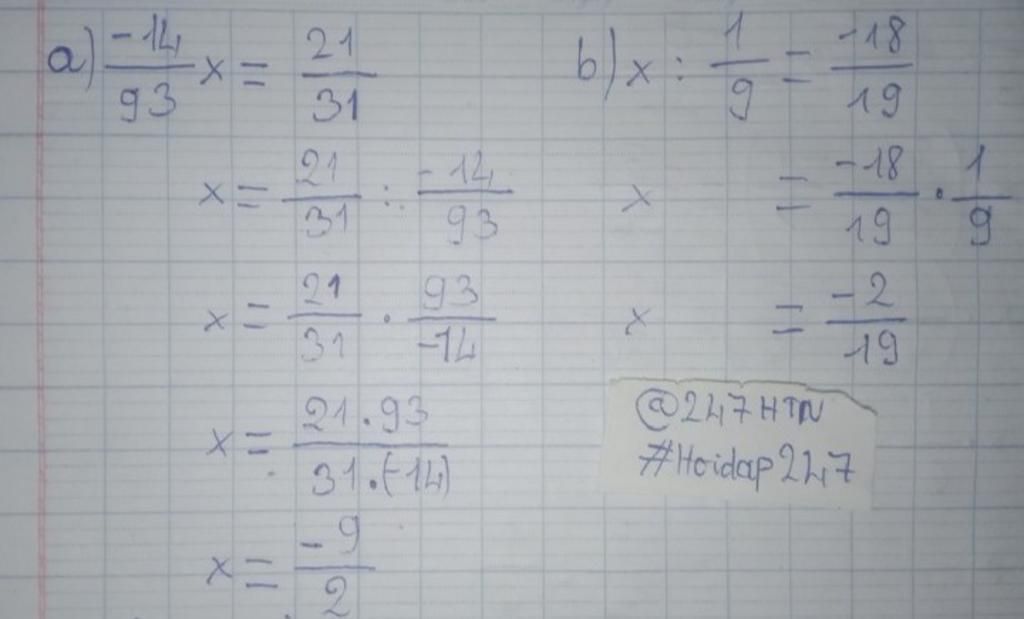 a) -14/93 x = 21/31
x = 21/31 : -14/93
x = 21/31 . 93/-14
x = 21.93/31.(-14)
x = -9/2
b) x : 1/9 = -18/19
x = -18/19 . 1/9
x = -2/19
@247HTN
#Hoidap247